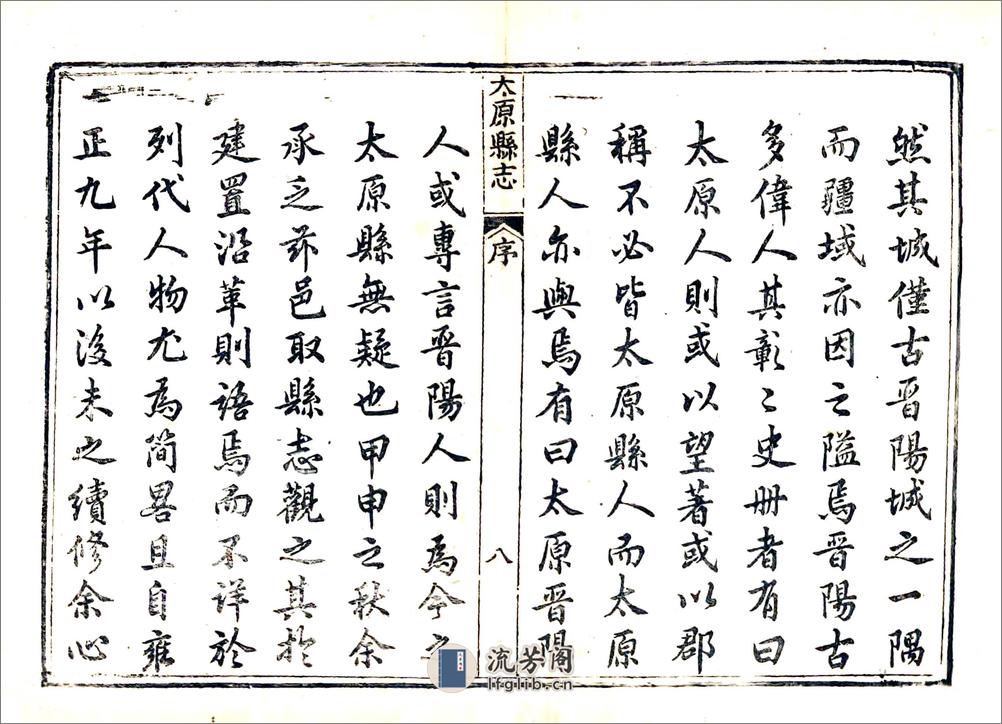 然其城僅古晉陽城之一隅
而疆域亦因之隘焉晉陽古
多偉人其彰〻史册者有曰
太原人則或以望著或以郡
稱不必皆太原縣人而太原
縣人亦與焉有曰太原晉陽
太原縣志
序
八
人或專言晉陽人則爲今之
太原縣無疑也甲申之秋余
承乏茲邑取縣志觀之其於
建置沿革則語焉而不詳於
列代人物尤爲簡畧且自雍
正九年以後未之續修余心
流芳閣
lfglib.cn